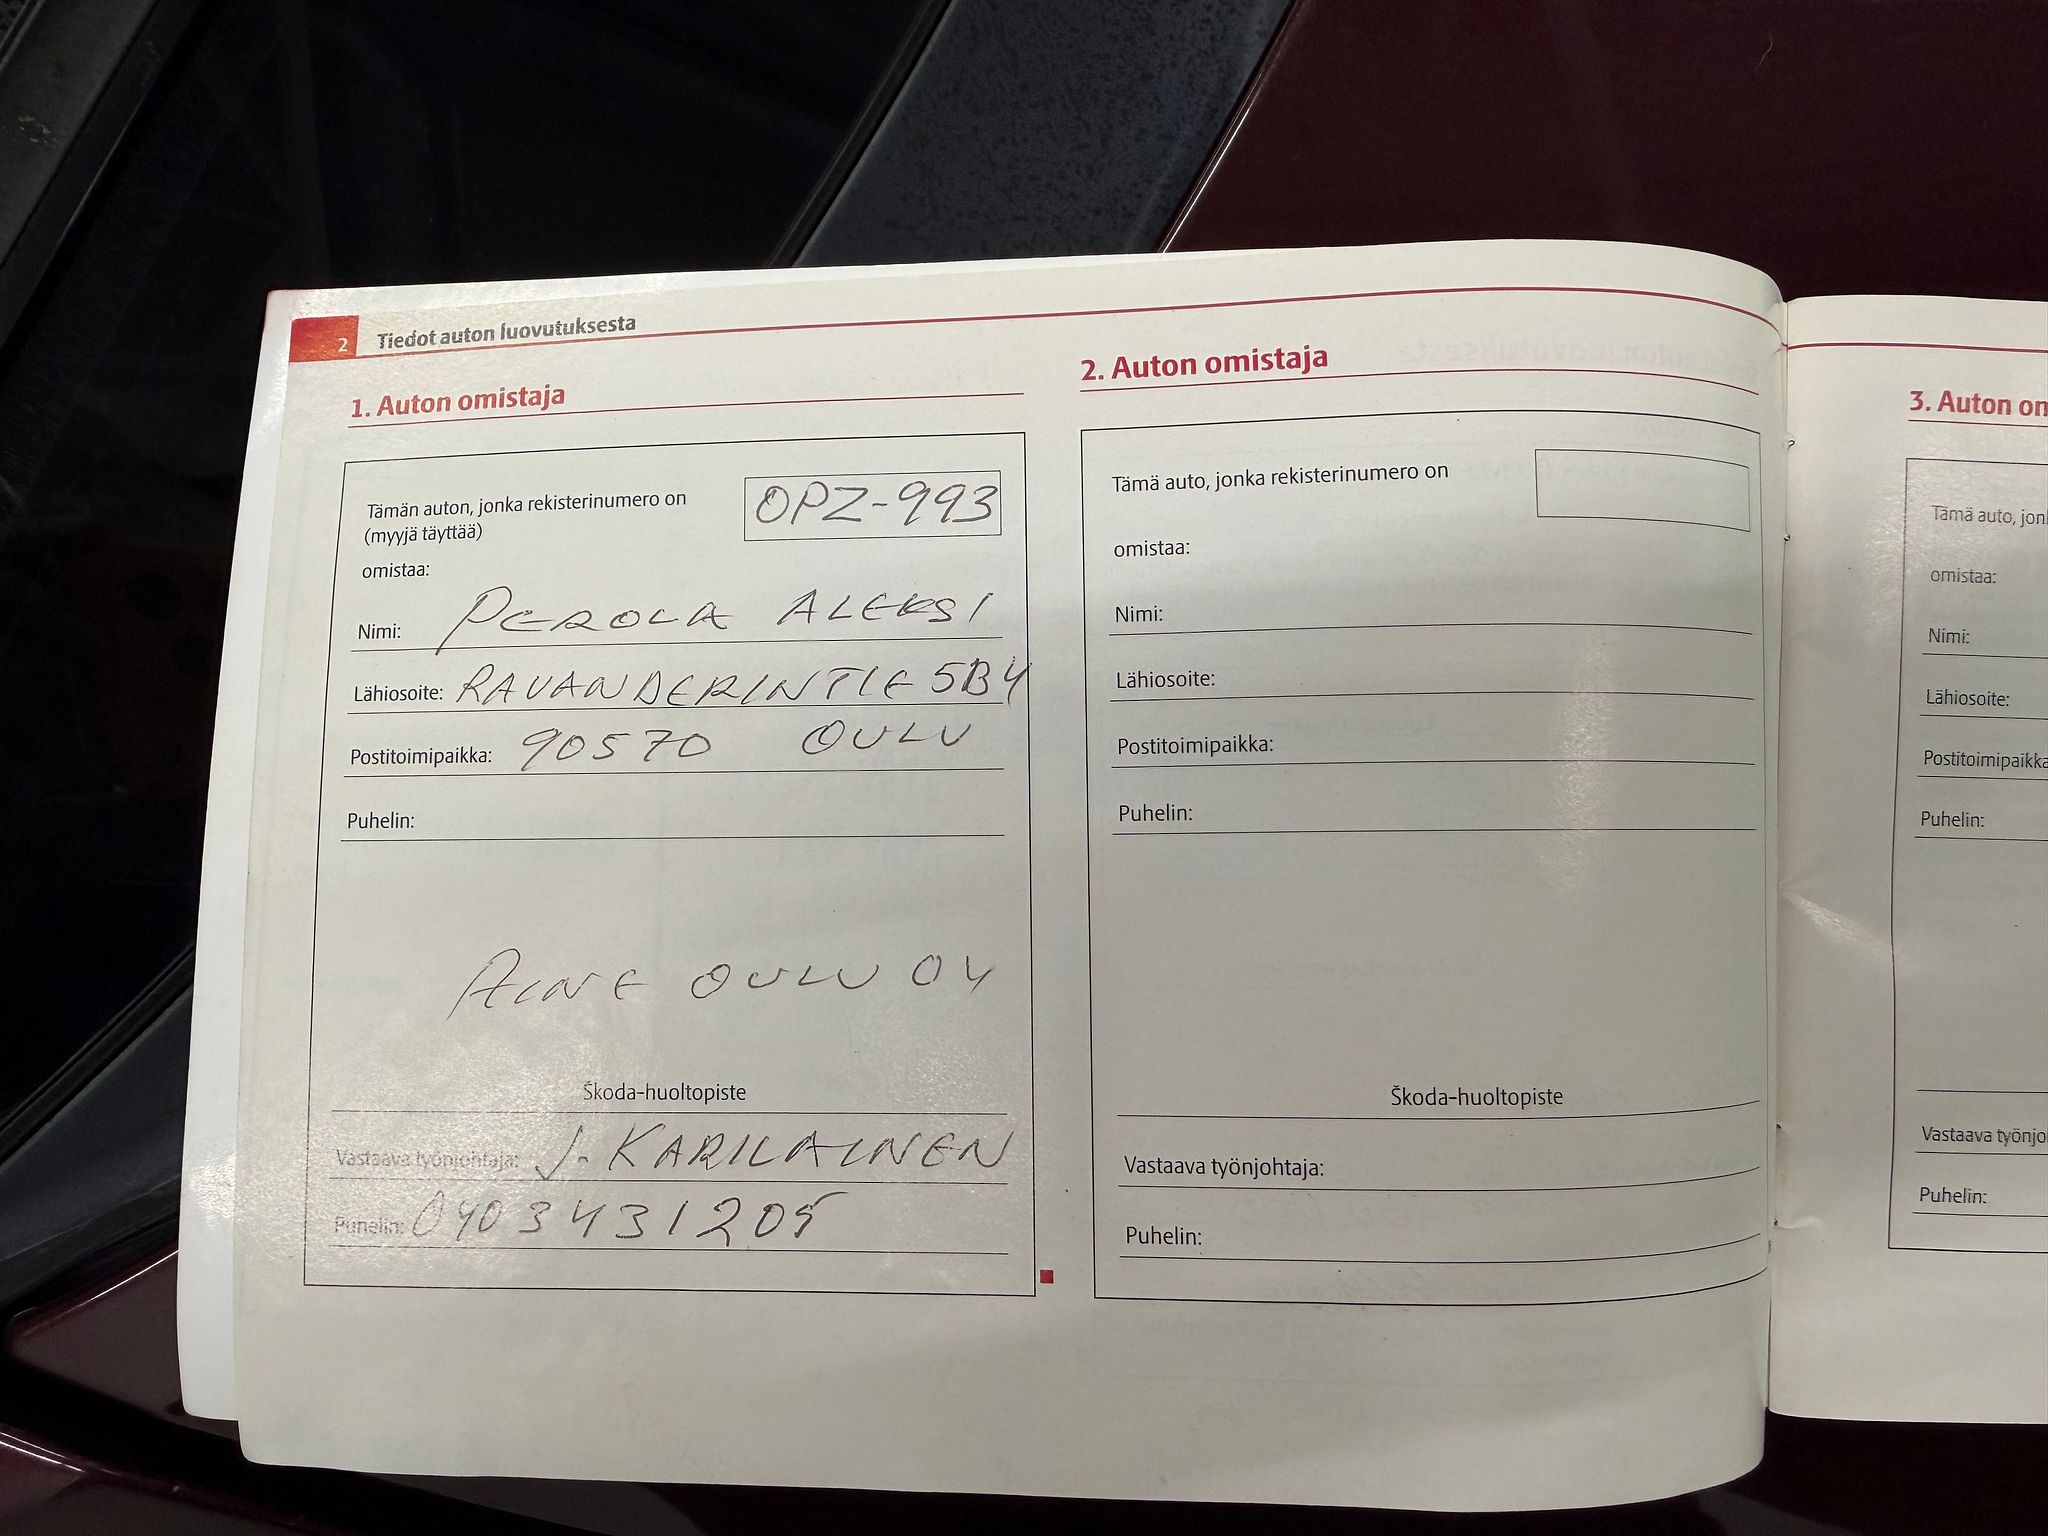 2 Tiedot auton luovutuksesta
1. Auton omistaja
Tämän auton, jonka rekisterinumero on
(myyjä täyttää)
OPZ-993
omistaa:
Nimi: PEROLA ALEKSI
Lähiosoite: RAVANDERINTIE 5B4
Postitoimipaikka: 90570 OULU
Puhelin:
OULU 04
Škoda-huoltopiste
Vastaava työnjohtaja: J. KARILAINEN
Puhelin: 0403431205
2. Auton omistaja
Tämä auto, jonka rekisterinumero on
omistaa:
Nimi:
Lähiosoite:
Postitoimipaikka:
Puhelin:
Škoda-huoltopiste
Vastaava työnjohtaja:
Puhelin:
3. Auton om
Tämä auto, jonk
omistaa:
Nimi:
Lähiosoite:
Postitoimipaikka
Puhelin:
Vastaava työnjo
Puhelin: